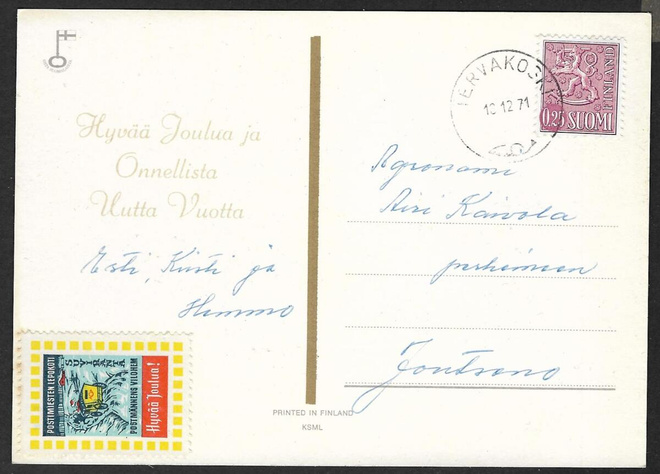 Hyvää Joulua ja
Onnellista
Uutta Vuotta
Kirsti ja
Himmo
POSTIMIESTEN LEPOKOTI
SUVIRANTA
POSTMÄNNENS VILOHEM
Hyvää Joulua!
PRINTED IN FINLAND
KSML
TERVAKOSKI
10 12 71
FINLAND
0,25 SUOMI
Agronomi
Airi Kaivola
perheineen
Joutseno